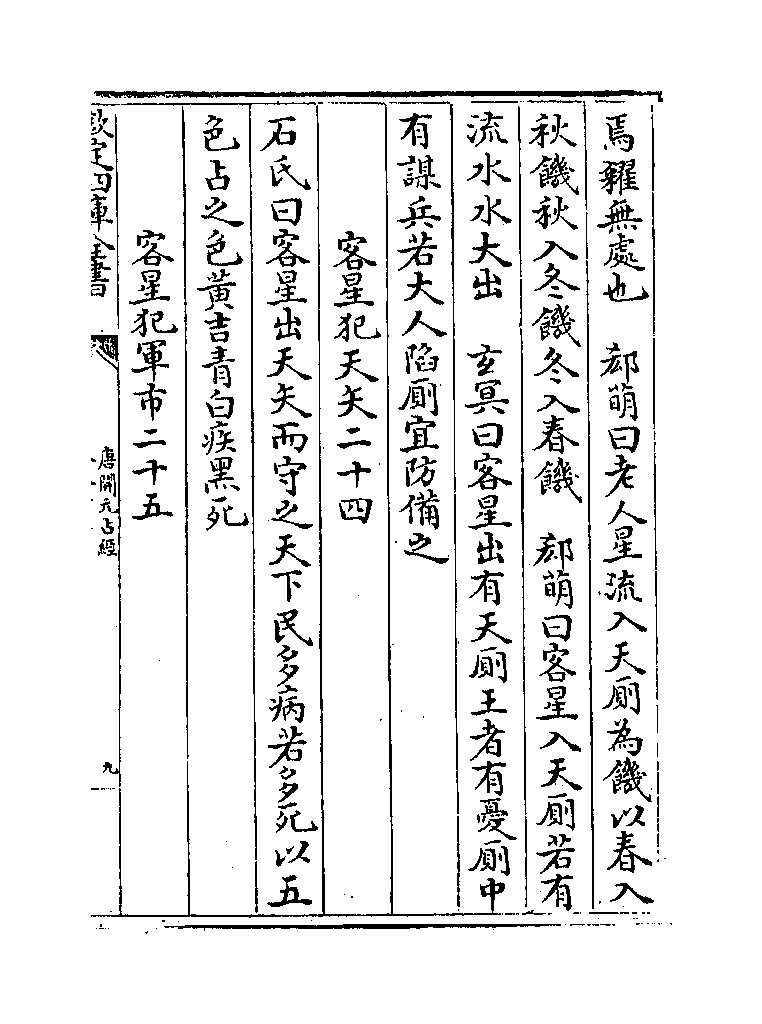 焉糴無處也　郄萌曰老人星流入天厠為饑以春入
秋饑秋入冬饑冬入春饑　郄萌曰客星入天厠若有
流水水大出　玄冥曰客星出有天厠王者有憂厠中
有謀兵若大人陷厠宜防備之
客星犯天矢二十四
石氏曰客星出天矢而守之天下民多病若多死以五
色占之色黃吉青白疾黑死
客星犯軍市二十五
欽定四庫全書
唐開元占經
九